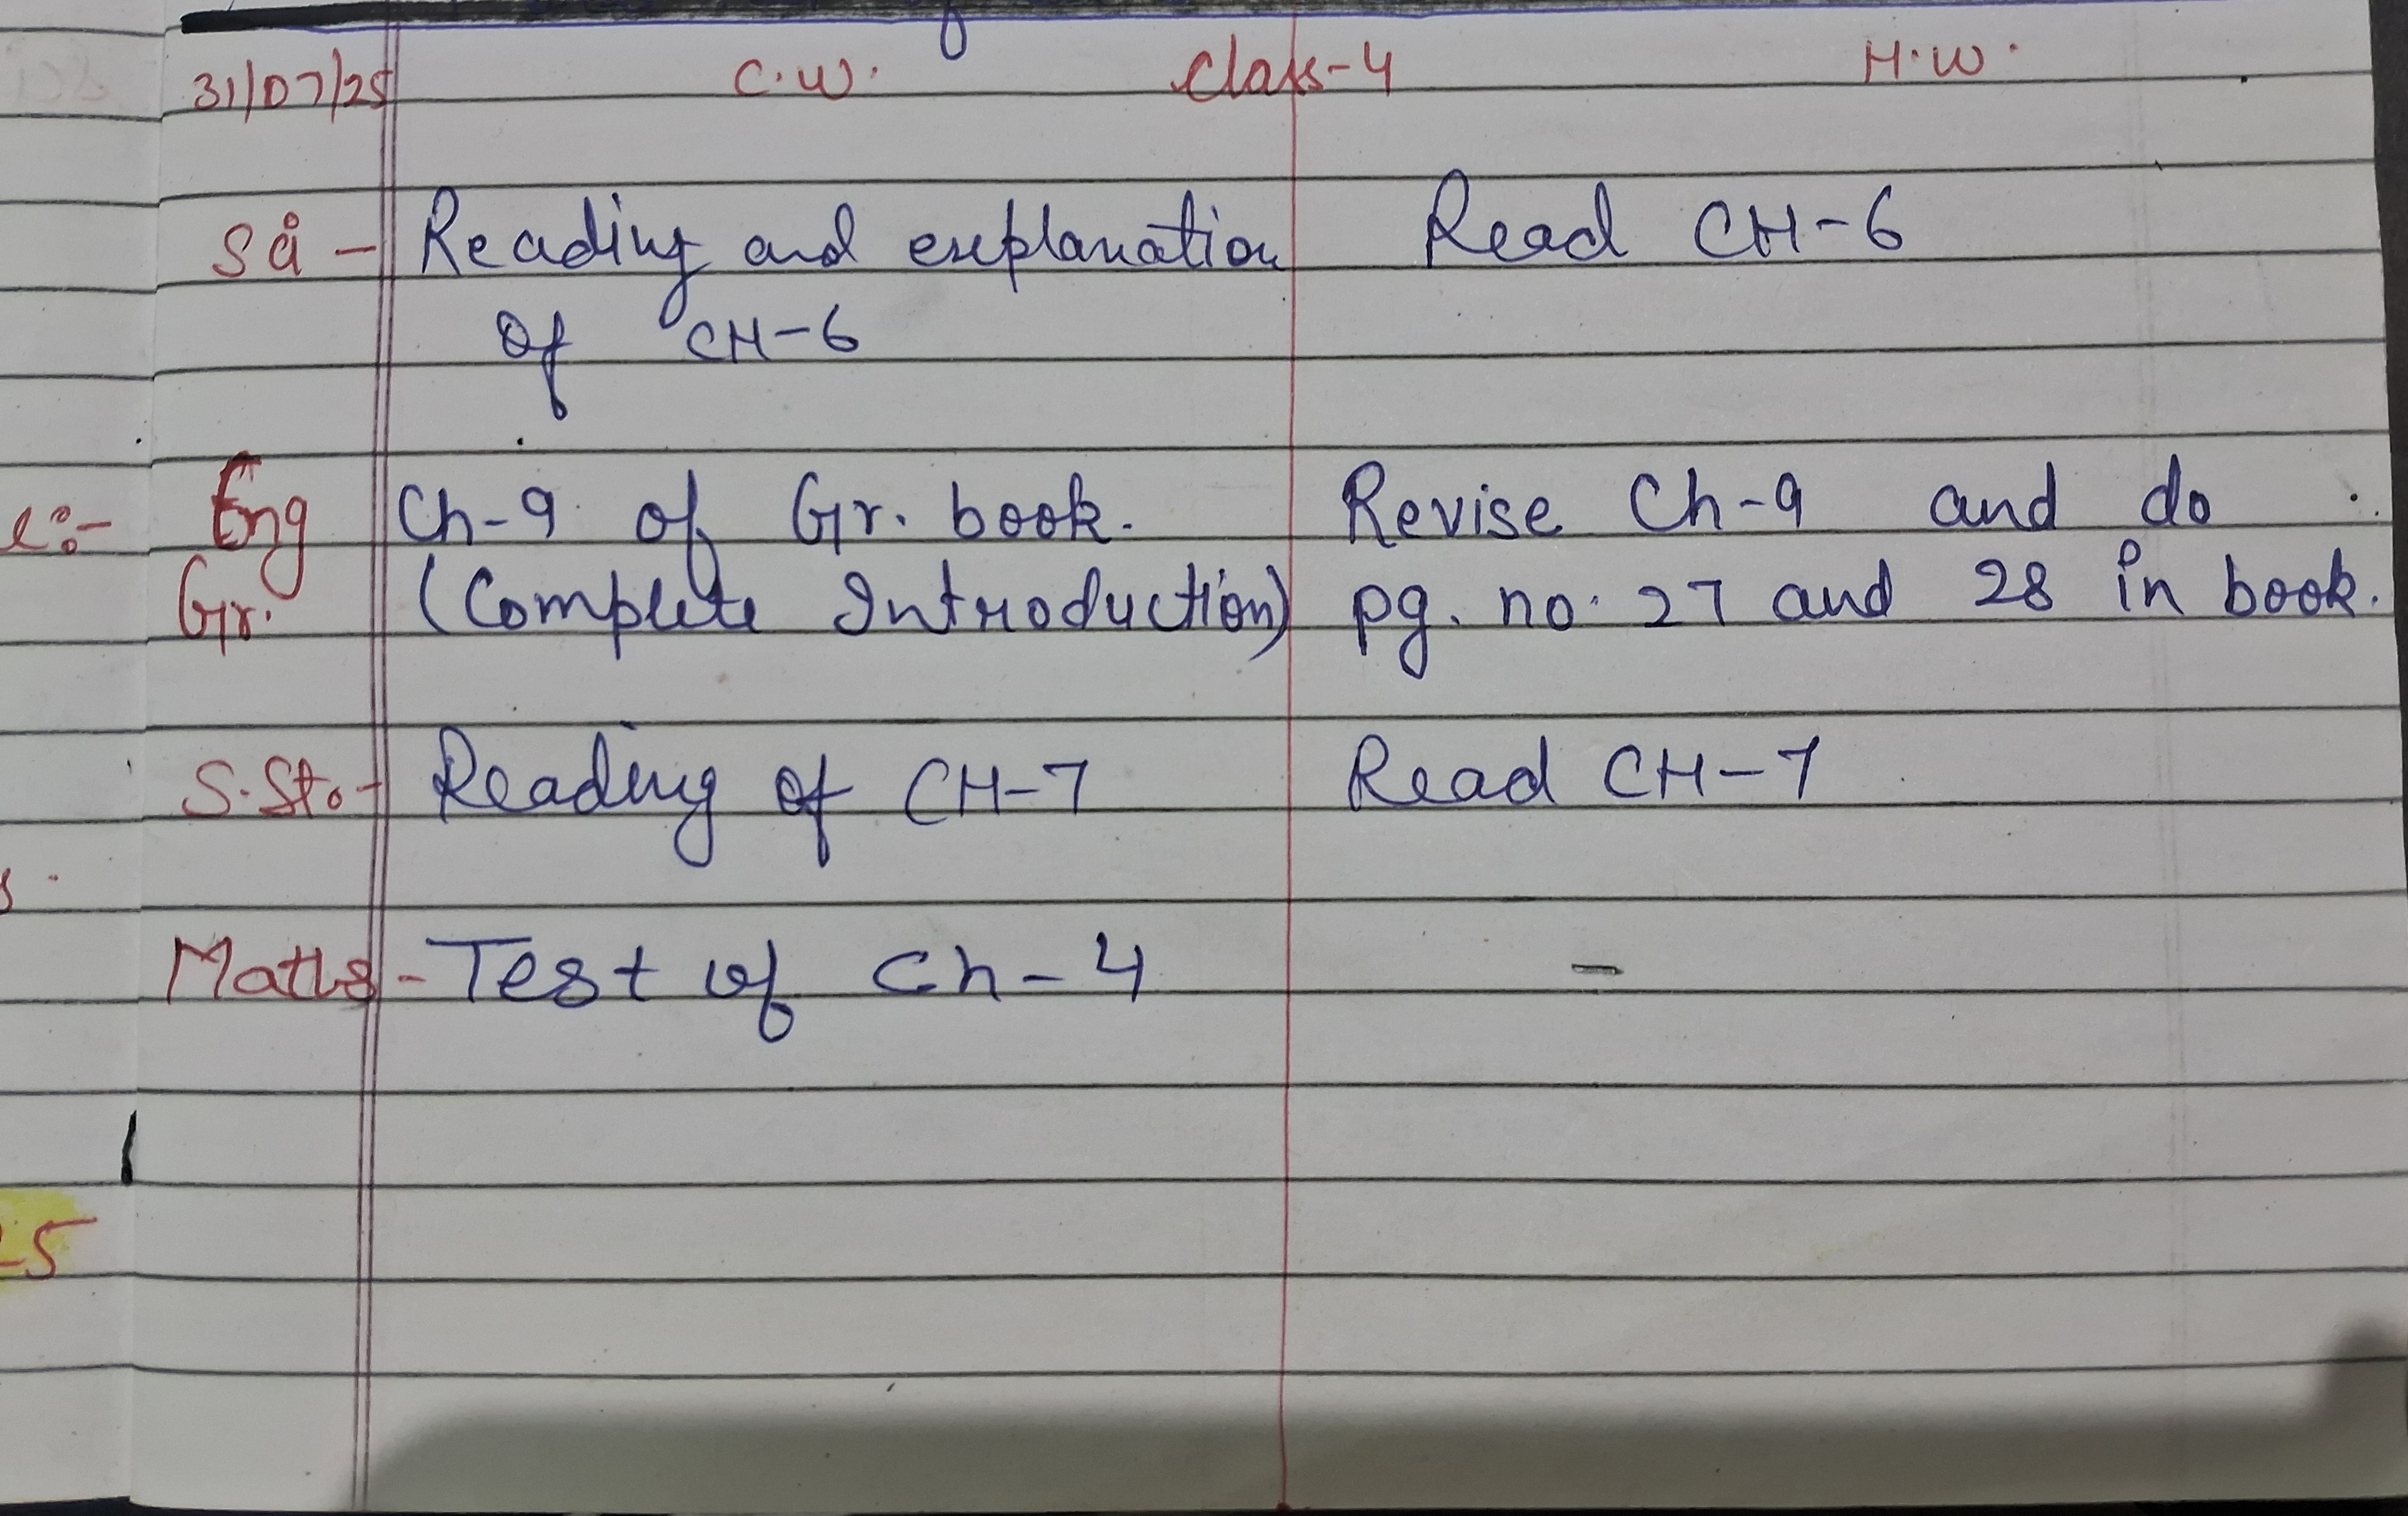 31/07/25 C.W. Class-4 H.W.
Reading and explanation Read CH-6
of CH-6
Eng Ch-9 of Gr. book. Revise Ch-9 and do
Gr. (Complete Introduction) pg. no. 27 and 28 in book.
S.St.- Reading of CH-7 Read CH-7
Maths - Test of Ch-4 -
-5